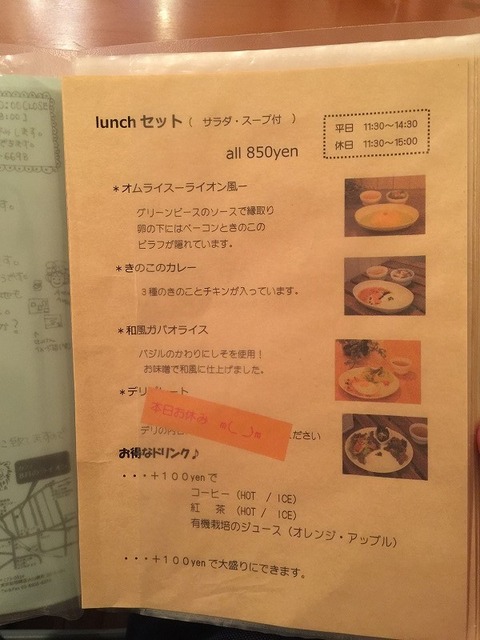 lunch セット ( サラダ・スープ付 )
平日 11:30～14:30
休日 11:30～15:00
all 850yen
＊オムライスーライオン風ー
グリーンピースのソースで縁取り
卵の下にはベーコンときのこの
ピラフが隠れています。
＊きのこのカレー
３種のきのことチキンが入っています。
＊和風ガパオライス
バジルのかわりにしそを使用！
お味噌で和風に仕上げました。
＊デリ レート
本日お休み m(_ _)m
デリの内 ください
お得なドリンク♪
・・・＋１００yen で
コーヒー (HOT / ICE)
紅　茶 (HOT / ICE)
有機栽培のジュース (オレンジ・アップル)
・・・＋１００yen で大盛りにできます。